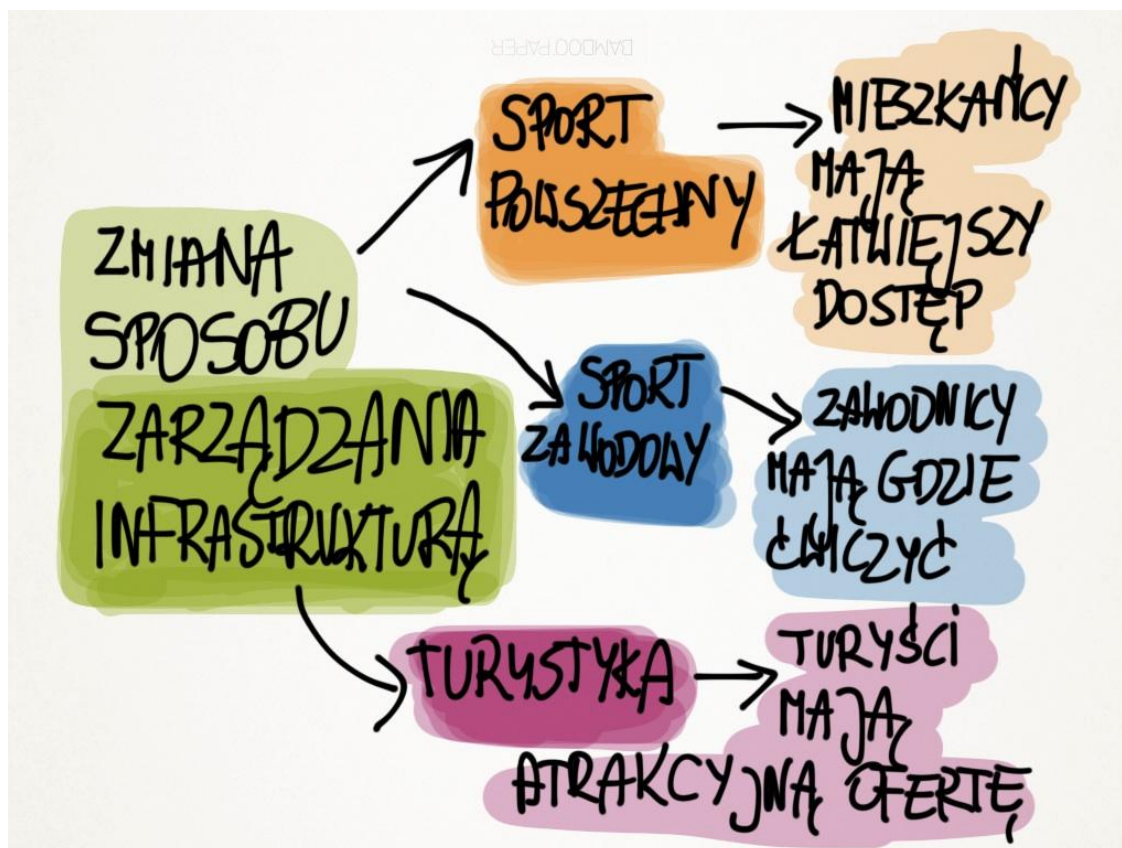 BAMBOO PAPER
ZMIANA
SPOSOBU
ZARZĄDZANIA
INFRASTRUKTURĄ
SPORT
POWSZECHNY
MIESZKAŃCY
MAJĄ
ŁATWIEJSZY
DOSTĘP
SPORT
ZAWODOWY
ZAWODNICY
MAJĄ GDZIE
ĆWICZYĆ
TURYSTYKA
TURYŚCI
MAJĄ
ATRAKCYJNĄ OFERTĘ